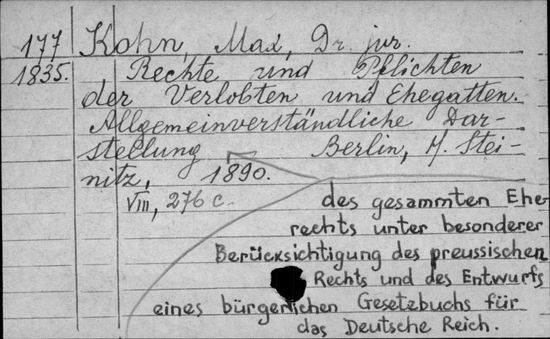 177 Kohn, Max, Dr. jur.
1835. Rechte und Pflichten
der Verlobten und Ehegatten.
Allgemeinverständliche Dar-
stellung Berlin, M. Stei-
nitz, 1890.
VIII, 276 c.
des gesammten Ehe-
rechts unter besonderer
Berücksichtigung des preussischen
Rechts und des Entwurfs
eines bürgerlichen Gesetzbuchs für
das Deutsche Reich.